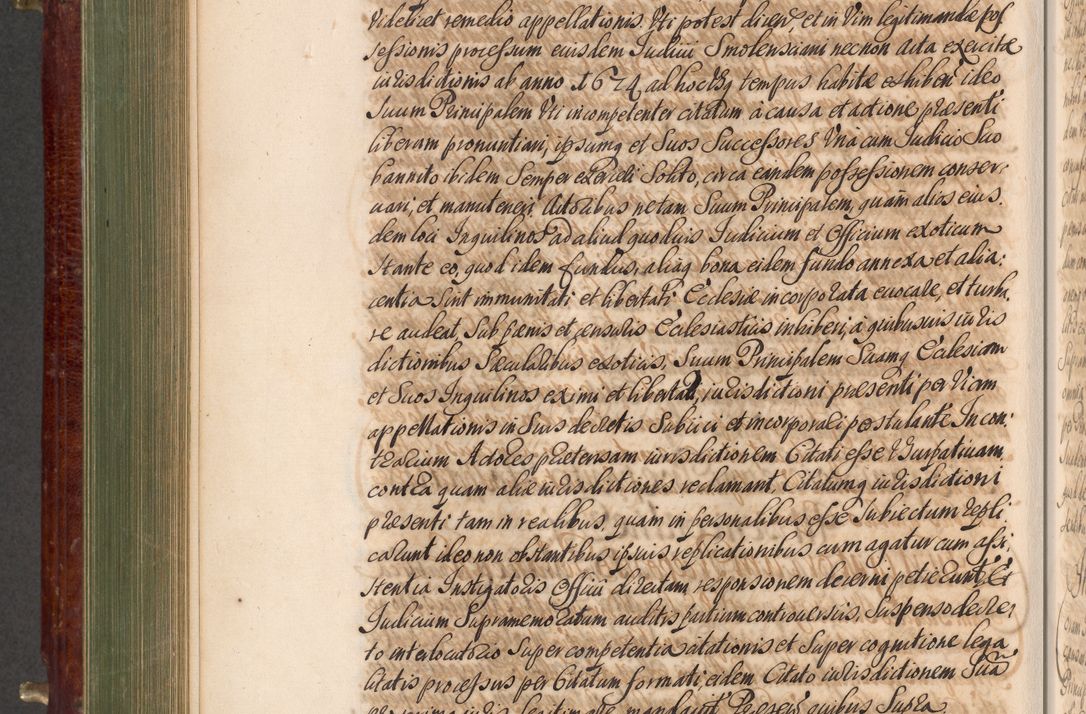 Videbitet remedio appellationis. Uti potest dicere, et in Vim legitimandæ pos
sessionis processum eiusdem Iudicii Smolensciani necnon Acta exercitæ
iurisdictionis ab anno 1674 ad hocusq tempus habitæ exhibent ideo
Suum Principalem Uti incompetenter citatum à causa et actione præsenti
liberam pronuntiari, ipsumq et Suos Successores Vna cum Iudicio Suo
bannito ibidem Semper exerceri Solito, circa eandem possessionem conser:
uari, et manuteneri. Actoribus ne tam Suum Principalem, quam alios eius.
dem loci Inquilinos ad aliud quoduis Iudicium et Officium exoticum
Stante eo, quod idem fundus, aliaq bona eidem fundo annexa et adia:
centia Sint immunitati et libertati Ecclesiæ incorporata euocare, et turba,
re audeat, Sub pœnis et censuris Ecclesiasticis inhiberi, à quibusuis iuris
dictionibus Sæcularibus exoticis, Suum Principalem Suamq Ecclesiam
et Suos Inquilinos eximi et libertari, iurisdictioni præsenti per Viam
appellationis in Suis decretis Subiici et incorporari postulante. In con:
trarium Actores prætensam iurisdictionem Citati esse Usurpatiuam,
contra quam aliæ iurisdictiones reclamant Citatumq iurisdictioni
præsenti tam in realibus, quam in personalibus esse Subiectum repli
carunt ideo non obstantibus ipsius replicationibus cum agatur cum assi,
stentia Instigatoris Officii directam responsionem decerni petierunt, Et
Iudicium Supramemoratum auditis partium controuersiis, Suspenso decre,
to interlocutorio Super competentia citationis et Super cognitione lega
litatis processus per Citatum formati, eidem Citato iurisdictionem Suā
quibus Supra